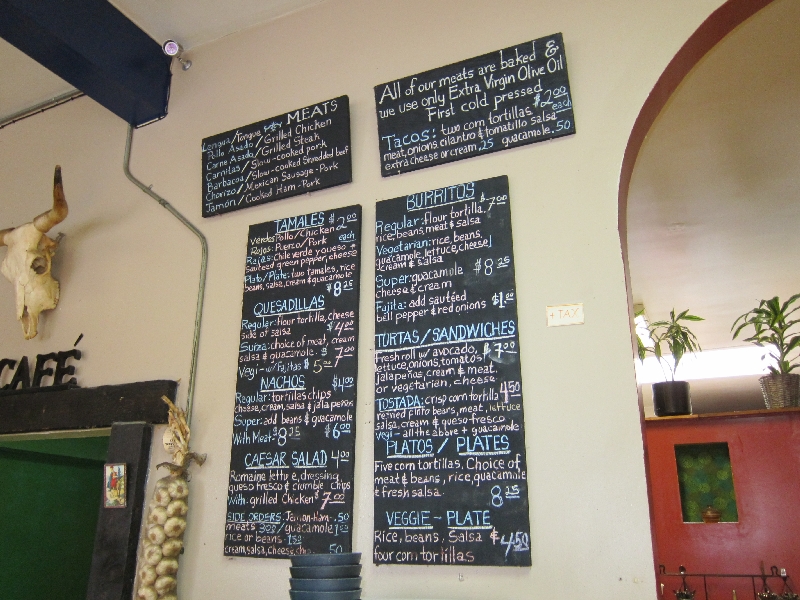 MEATS
Lengua/Tongue
Pollo Asado/Grilled Chicken
Carne Asado/Grilled Steak
Carnitas/Slow-cooked pork
Barbacoa/Slow-cooked Shredded beef
Chorizo/Mexican Sausage-Pork
Jamón/Cooked Ham-Pork
All of our meats are baked &
we use only Extra Virgin Olive Oil
First cold pressed
Tacos: two corn tortillas $2.00 each
meat, onions cilantro & tomatillo salsa
extra cheese or cream .25 guacamole .50
TAMALES $2.00 each
Verdes: Pollo/Chicken
Rojos: Puerco/Pork
Rajas: Chile verde y queso
Sauteed green pepper, cheese
Plato/Plate: two tamales, rice
beans, salsa, cream & guacamole
$8.25
QUESADILLAS
Regular: flour tortilla, cheese
side of salsa $4.00
Suiza: choice of meat, cream
salsa & guacamole $7.00
Vegi-w/Fajitas $5.00
NACHOS $4.00
Regular: tortillas chips
cheese, cream, salsa & jalapeños
Super: add beans & guacamole
With Meat $8.25 $6.00
CAESAR SALAD 4.00
Romaine lettuce, dressing
queso fresco & crumble chips
With grilled Chicken $7.00
SIDE ORDERS: Jamon-Ham .50
meats 3.00/guacamole 1.50
rice or beans 1.50
cream, salsa, cheese, .50
BURRITOS
Regular: flour tortilla, $7.00
rice, beans, meat & salsa
Vegetarian: rice, beans,
guacamole, lettuce, cheese
cream & salsa
Super: guacamole $8.25
cheese & cream
Fajita: add sautéed $1.00
bell pepper & red onions
TORTAS/SANDWICHES
Fresh roll w/ avocado, $7.00
lettuce, onions, tomatos
jalapeños, cream & meat
or vegetarian, cheese
TOSTADA: crisp corn tortilla 4.50
refried pinto beans, meat, lettuce
salsa, cream & queso fresco
vegi-all the above + guacamole
PLATOS/PLATES
Five corn tortillas, Choice of
meat & beans, rice, guacamole
& fresh salsa
8.25
VEGGIE-PLATE
Rice, beans, Salsa & $4.50
four corn tortillas
+ TAX
CAFÉ